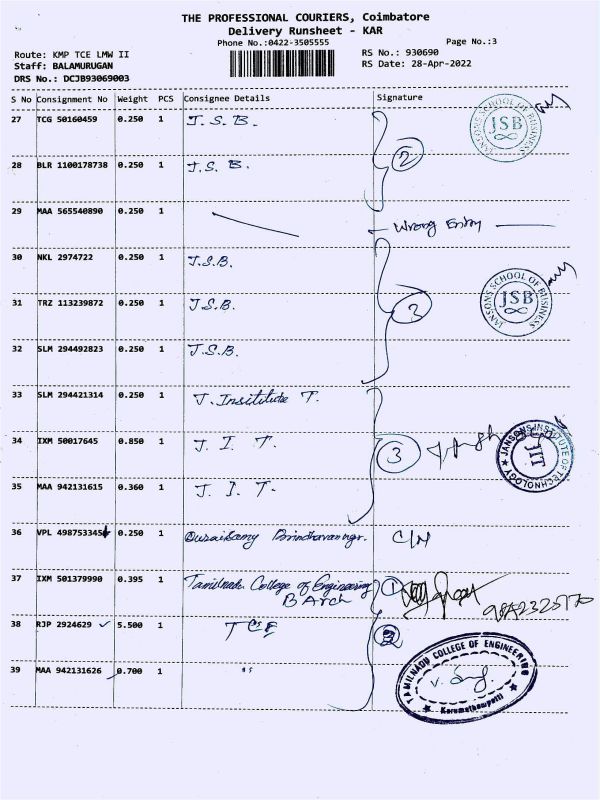 THE PROFESSIONAL COURIERS, Coimbatore
Delivery Runsheet - KAR
Phone No.:0422-3505555
Page No.:3
Route: KMP TCE LMW II
RS No.: 930690
Staff: BALAMURUGAN
RS Date: 28-Apr-2022
DRS No.: DCJB93069003
S No Consignment No Weight PCS Consignee Details Signature
27 TCG 50160459 0.250 1 J. S. B.
JANSONS SCHOOL OF BUSINESS JSB
28 BLR 1100178738 0.250 1 J.S. B. 2
29 MAA 565540890 0.250 1
Wrong Entry
30 NKL 2974722 0.250 1 J.S.B.
31 TRZ 113239872 0.250 1 J.S.B. 3
JANSONS SCHOOL OF BUSINESS JSB
32 SLM 294492823 0.250 1 J.S.B.
33 SLM 294421314 0.250 1 J. Institute T.
34 IXM 50017645 0.850 1 J. I. T. 3
JANSONS INSTITUTE OF TECHNOLOGY JIT
35 MAA 942131615 0.360 1 J. I. T.
36 VPL 49875334 0.250 1 C/N
37 IXM 501379990 0.395 1 Tamilnadu College of Engineering 1
B Arch
38 RJP 2924629 5.500 1 TCE
39 MAA 942131626 0.700 1 "
TAMILNADU COLLEGE OF ENGINEERING
Karumathampatti